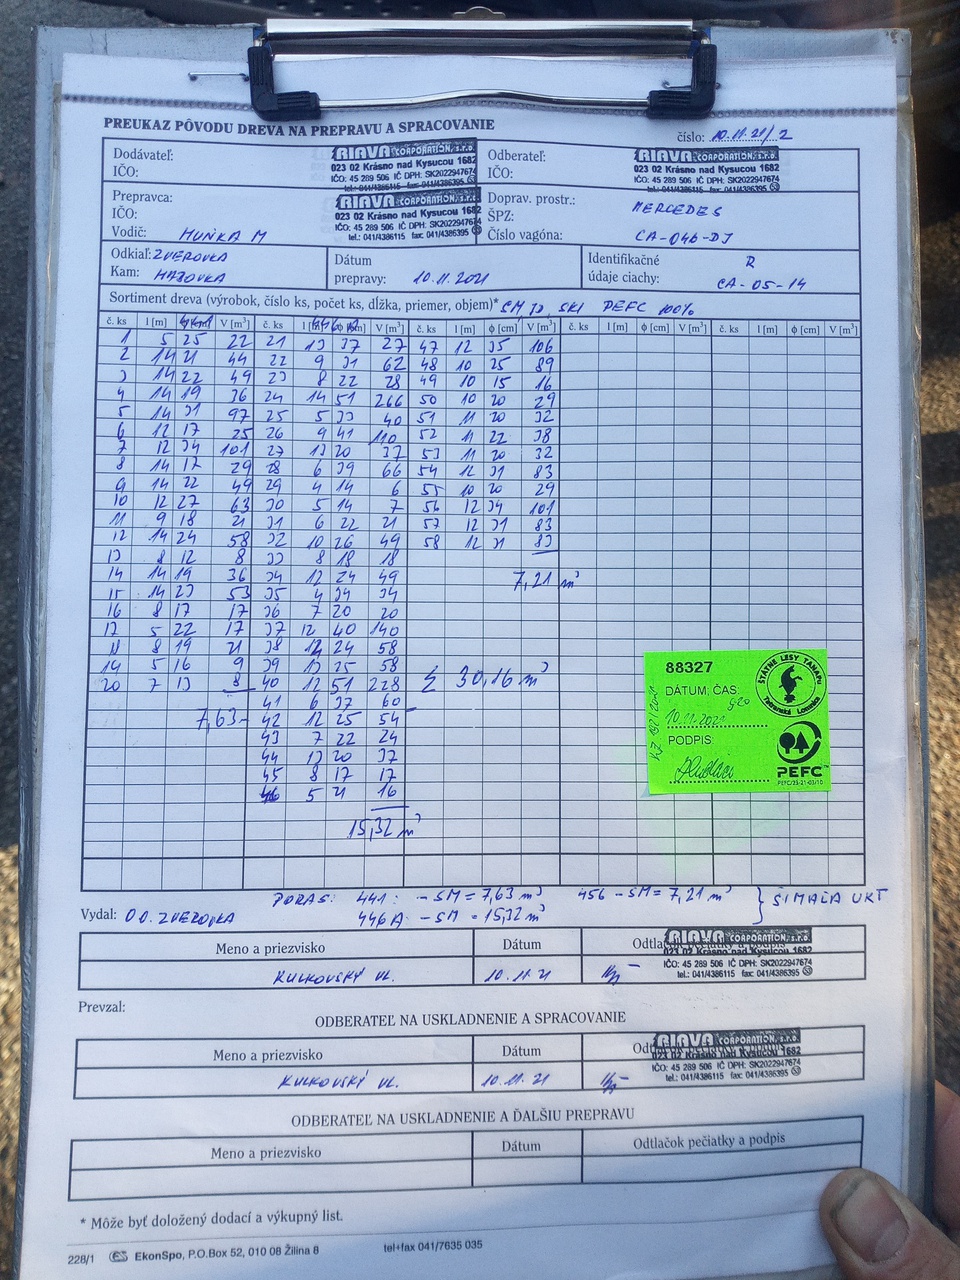 PREUKAZ PÔVODU DREVA NA PREPRAVU A SPRACOVANIE
číslo: 10.11.21/2
Dodávateľ:
IČO:
RIAVA CORPORATION, s.r.o.
023 02 Krásno nad Kysucou 1682
IČO: 45 289 506 IČ DPH: SK2022947674
tel.: 041/4386115 fax: 041/4386395
Odberateľ:
IČO:
RIAVA CORPORATION, s.r.o.
023 02 Krásno nad Kysucou 1682
IČO: 45 289 506 IČ DPH: SK2022947674
tel.: 041/4386115 fax: 041/4386395
Prepravca:
IČO:
Vodič: MUŇKA M
RIAVA CORPORATION, s.r.o.
023 02 Krásno nad Kysucou 1682
IČO: 45 289 506 IČ DPH: SK2022947674
tel.: 041/4386115 fax: 041/4386395
Doprav. prostr.: MERCEDES
ŠPZ:
Číslo vagóna: CA-046-DJ
Odkiaľ: ZVEROVKA
Kam:
Dátum
prepravy: 10.11.2021
Identifikačné R
údaje ciachy: CA-05-14
Sortiment dreva (výrobok, číslo ks, počet ks, dĺžka, priemer, objem)* PEFC 100%
č. ks l [m] 441 V [m³] č. ks l [m] 446A V [m³] č. ks l [m] ϕ [cm] V [m³] č. ks l [m] ϕ [cm] V [m³] č. ks l [m] ϕ [cm] V [m³]
1 5 25 22 21 13 37 27 47 12 35 106
2 14 21 44 22 9 31 62 48 10 35 89
3 14 22 49 23 8 22 28 49 10 15 16
4 14 19 36 24 14 51 266 50 10 20 29
5 14 31 97 25 5 33 40 51 11 20 32
6 12 17 25 26 9 41 110 52 11 22 38
7 12 34 101 27 13 20 37 53 11 20 32
8 14 17 29 28 6 39 66 54 12 31 83
9 14 22 49 29 4 14 6 55 10 20 29
10 12 27 63 30 5 14 7 56 12 34 101
11 9 18 21 31 6 22 21 57 12 31 83
12 14 24 58 32 10 26 49 58 12 31 83
13 8 12 8 33 8 18 18
14 14 19 36 34 12 24 49 7,21 m³
15 14 23 53 35 4 34 34
16 8 17 17 36 7 20 20
17 5 22 17 37 12 40 140
18 8 19 21 38 12 24 58
19 5 16 9 39 13 25 58
20 7 13 8 40 12 51 228 Σ 30,16 m³
41 6 37 60
7,63 42 12 25 54
43 7 22 24
44 13 20 37
45 8 17 17
46 5 21 16
15,32 m³
88327
DÁTUM; ČAS:
9:20
10.11.2021
PODPIS:
ŠTÁTNE LESY TANAPu
Tatranská Lomnica
PEFC™
PEFC/25-21-03/10
PORAS: 441: - SM = 7,63 m³ 456 - SM = 7,21 m³ } ŠIMAĽA UKT
446A - SM = 15,32 m³
Vydal: OO. ZVEROVKA
Meno a priezvisko Dátum
KULKOVSKÝ VL. 10.11.21
RIAVA CORPORATION, s.r.o.
023 02 Krásno nad Kysucou 1682
IČO: 45 289 506 IČ DPH: SK2022947674
tel.: 041/4386115 fax: 041/4386395
Prevzal:
ODBERATEĽ NA USKLADNENIE A SPRACOVANIE
Meno a priezvisko Dátum
KULKOVSKÝ VL. 10.11.21
RIAVA CORPORATION, s.r.o.
023 02 Krásno nad Kysucou 1682
IČO: 45 289 506 IČ DPH: SK2022947674
tel.: 041/4386115 fax: 041/4386395
ODBERATEĽ NA USKLADNENIE A ĎALŠIU PREPRAVU
Meno a priezvisko Dátum Odtlačok pečiatky a podpis
* Môže byť doložený dodací a výkupný list.
228/1 ES EkonSpo, P.O.Box 52, 010 08 Žilina 8 tel+fax 041/7635 035